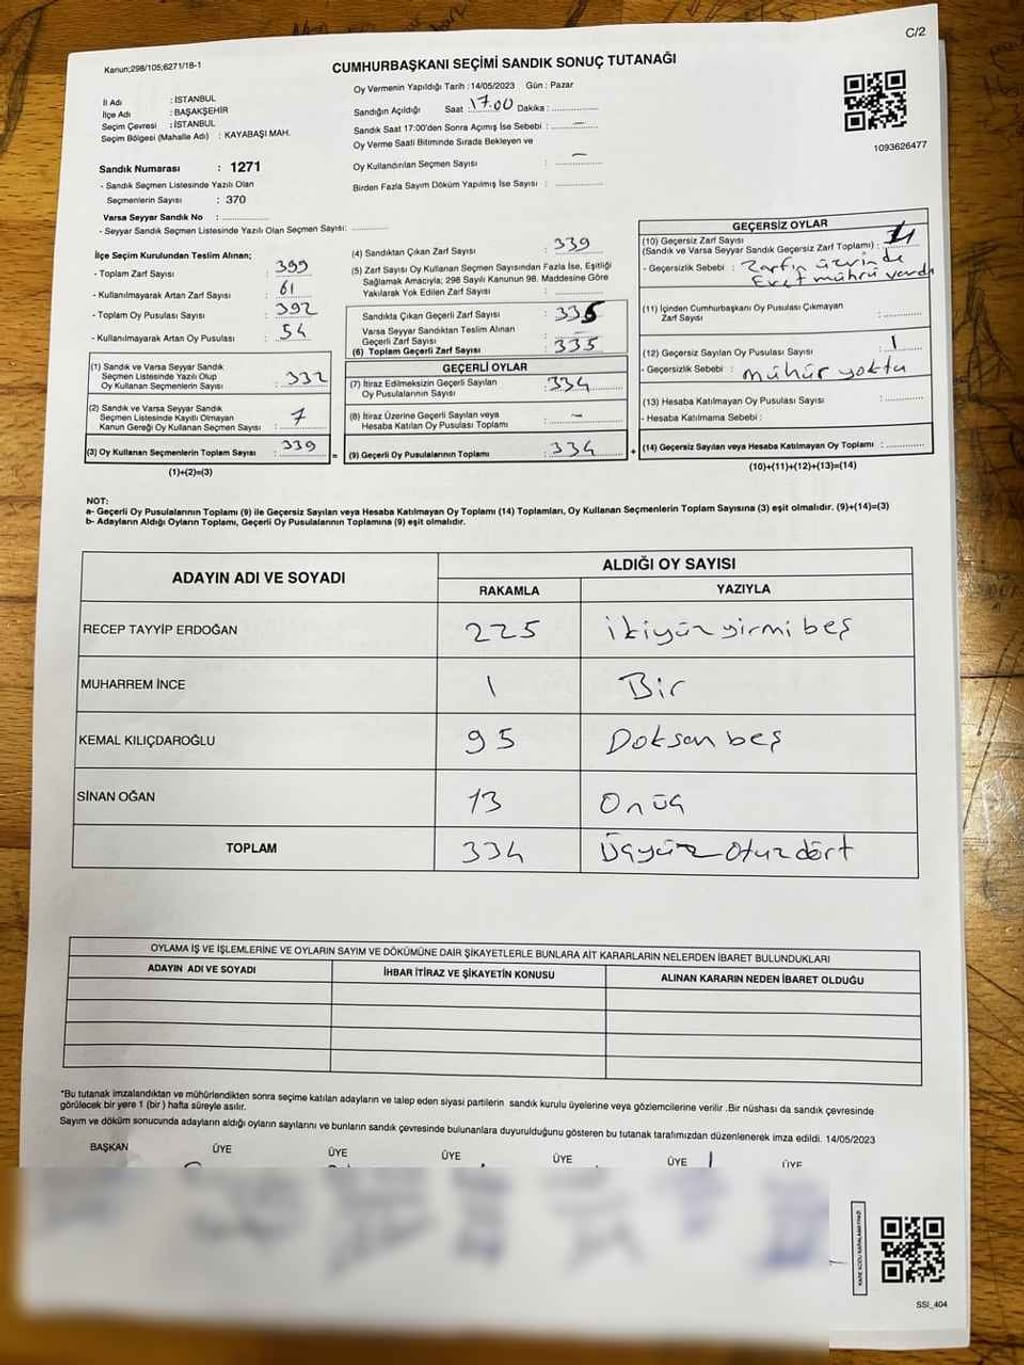 C/2
Kanun;298/105;6271/18-1
CUMHURBAŞKANI SEÇİMİ SANDIK SONUÇ TUTANAĞI
İl Adı : İSTANBUL
İlçe Adı : BAŞAKŞEHİR
Seçim Çevresi : İSTANBUL
Seçim Bölgesi (Mahalle Adı) : KAYABAŞI MAH.
Oy Vermenin Yapıldığı Tarih : 14/05/2023 Gün : Pazar
Sandığın Açıldığı Saat : 17.00 Dakika :
Sandık Saat 17:00'den Sonra Açımış İse Sebebi : —
Oy Verme Saati Bitiminde Sırada Bekleyen ve
Oy Kullandırılan Seçmen Sayısı : —
Birden Fazla Sayım Döküm Yapılmış İse Sayısı :
1093626477
Sandık Numarası : 1271
- Sandık Seçmen Listesinde Yazılı Olan
Seçmenlerin Sayısı : 370
Varsa Seyyar Sandık No :
- Seyyar Sandık Seçmen Listesinde Yazılı Olan Seçmen Sayısı:
İlçe Seçim Kurulundan Teslim Alınan;
- Toplam Zarf Sayısı : 399
- Kullanılmayarak Artan Zarf Sayısı : 61
- Toplam Oy Pusulası Sayısı : 392
- Kullanılmayarak Artan Oy Pusulası : 54
(1) Sandık ve Varsa Seyyar Sandık
Seçmen Listesinde Yazılı Olup
Oy Kullanan Seçmenlerin Sayısı : 332
(2) Sandık ve Varsa Seyyar Sandık
Seçmen Listesinde Kayıtlı Olmayan
Kanun Gereği Oy Kullanan Seçmen Sayısı : 7
(3) Oy Kullanan Seçmenlerin Toplam Sayısı : 339
(1)+(2)=(3)
(4) Sandıktan Çıkan Zarf Sayısı : 339
(5) Zarf Sayısı Oy Kullanan Seçmen Sayısından Fazla İse, Eşitliği
Sağlamak Amacıyla; 298 Sayılı Kanunun 98. Maddesine Göre
Yakılarak Yok Edilen Zarf Sayısı :
Sandıkta Çıkan Geçerli Zarf Sayısı : 335
Varsa Seyyar Sandıktan Teslim Alınan
Geçerli Zarf Sayısı :
(6) Toplam Geçerli Zarf Sayısı : 335
GEÇERLİ OYLAR
(7) İtiraz Edilmeksizin Geçerli Sayılan
Oy Pusulalarının Sayısı : 334
(8) İtiraz Üzerine Geçerli Sayılan veya
Hesaba Katılan Oy Pusulası Toplamı : —
= (9) Geçerli Oy Pusulalarının Toplamı : 334
GEÇERSİZ OYLAR
(10) Geçersiz Zarf Sayısı
(Sandık ve Varsa Seyyar Sandık Geçersiz Zarf Toplamı) :
- Geçersizlik Sebebi : Zarfın üzerinde
Evet mührü vardı
(11) İçinden Cumhurbaşkanı Oy Pusulası Çıkmayan
Zarf Sayısı :
(12) Geçersiz Sayılan Oy Pusulası Sayısı : 1
- Geçersizlik Sebebi : mühür yoktu
(13) Hesaba Katılmayan Oy Pusulası Sayısı :
- Hesaba Katılmama Sebebi :
+ (14) Geçersiz Sayılan veya Hesaba Katılmayan Oy Toplamı :
(10)+(11)+(12)+(13)=(14)
NOT:
a- Geçerli Oy Pusulalarının Toplamı (9) ile Geçersiz Sayılan veya Hesaba Katılmayan Oy Toplamı (14) Toplamları, Oy Kullanan Seçmenlerin Toplam Sayısına (3) eşit olmalıdır. (9)+(14)=(3)
b- Adayların Aldığı Oyların Toplamı, Geçerli Oy Pusulalarının Toplamına (9) eşit olmalıdır.
ADAYIN ADI VE SOYADI
ALDIĞI OY SAYISI
RAKAMLA YAZIYLA
RECEP TAYYİP ERDOĞAN 225 ikiyüz yirmi beş
MUHARREM İNCE 1 Bir
KEMAL KILIÇDAROĞLU 95 Doksan beş
SİNAN OĞAN 13 Onüç
TOPLAM 334 Üçyüz Otuz dört
OYLAMA İŞ VE İŞLEMLERİNE VE OYLARIN SAYIM VE DÖKÜMÜNE DAİR ŞİKAYETLERLE BUNLARA AİT KARARLARIN NELERDEN İBARET BULUNDUKLARI
ADAYIN ADI VE SOYADI İHBAR İTİRAZ VE ŞİKAYETİN KONUSU ALINAN KARARIN NEDEN İBARET OLDUĞU
*Bu tutanak imzalandıktan ve mühürlendikten sonra seçime katılan adayların ve talep eden siyasi partilerin sandık kurulu üyelerine veya gözlemcilerine verilir .Bir nüshası da sandık çevresinde
görülecek bir yere 1 (bir) hafta süreyle asılır.
Sayım ve döküm sonucunda adayların aldığı oyların sayılarını ve bunların sandık çevresinde bulunanlara duyurulduğunu gösteren bu tutanak tarafımızdan düzenlenerek imza edildi. 14/05/2023
BAŞKAN ÜYE ÜYE ÜYE ÜYE ÜYE ÜYE
KARE KODU KARALAMAYINIZ!
SSI_404